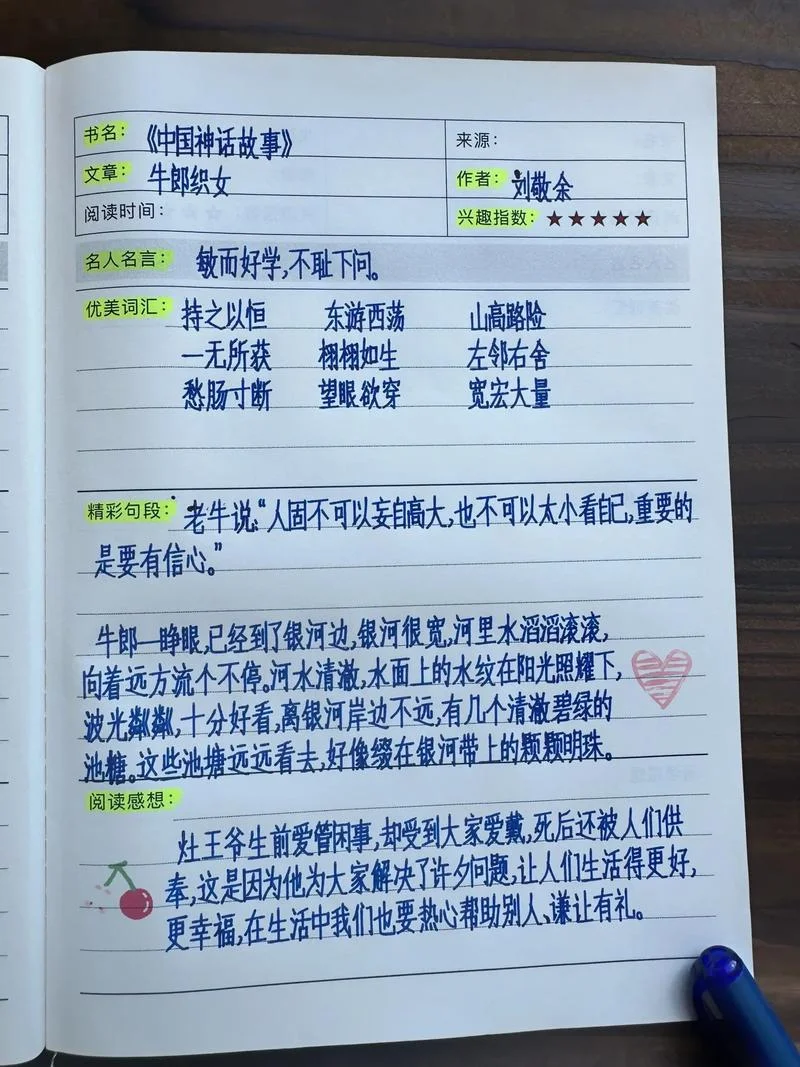 书名：《中国神话故事》 来源：
文章：牛郎织女 作者：刘敬余
阅读时间： 兴趣指数：★★★★★
名人名言：敏而好学,不耻下问。
优美词汇：持之以恒 东游西荡 山高路险
一无所获 栩栩如生 左邻右舍
愁肠寸断 望眼欲穿 宽宏大量
精彩句段：老牛说:“人固不可以妄自高大,也不可以太小看自己,重要的
是要有信心。”
牛郎一睁眼,已经到了银河边,银河很宽,河里水滔滔滚滚,
向着远方流个不停。河水清澈,水面上的水纹在阳光照耀下,
波光粼粼,十分好看,离银河岸边不远,有几个清澈碧绿的
池糖。这些池塘远远看去,好像缀在银河带上的颗颗明珠。
阅读感想：
灶王爷生前爱管闲事,却受到大家爱戴,死后还被人们供
奉,这是因为他为大家解决了许多问题,让人们生活得更好,
更幸福,在生活中我们也要热心帮助别人、谦让有礼。